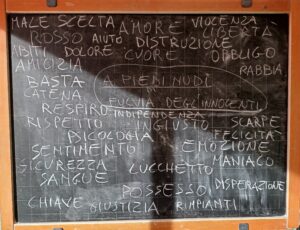 MALE SCELTA AMORE VIOLENZA
ROSSO AIUTO DISTRUZIONE LIBERTÀ
ABITI DOLORE CUORE OBBLIGO
AMICIZIA RABBIA
BASTA A PIEDI NUDI
CATENA
FULVIA DEGL'INNOCENTI
RESPIRO INDIPENDENZA
RISPETTO INGIUSTO SCARPE
PSICOLOGIA FELICITÀ
SENTIMENTO EMOZIONE
SICUREZZA LUCCHETTO MANIACO
SANGUE
POSSESSO DISPERAZIONE
CHIAVE GIUSTIZIA RIMPIANTI